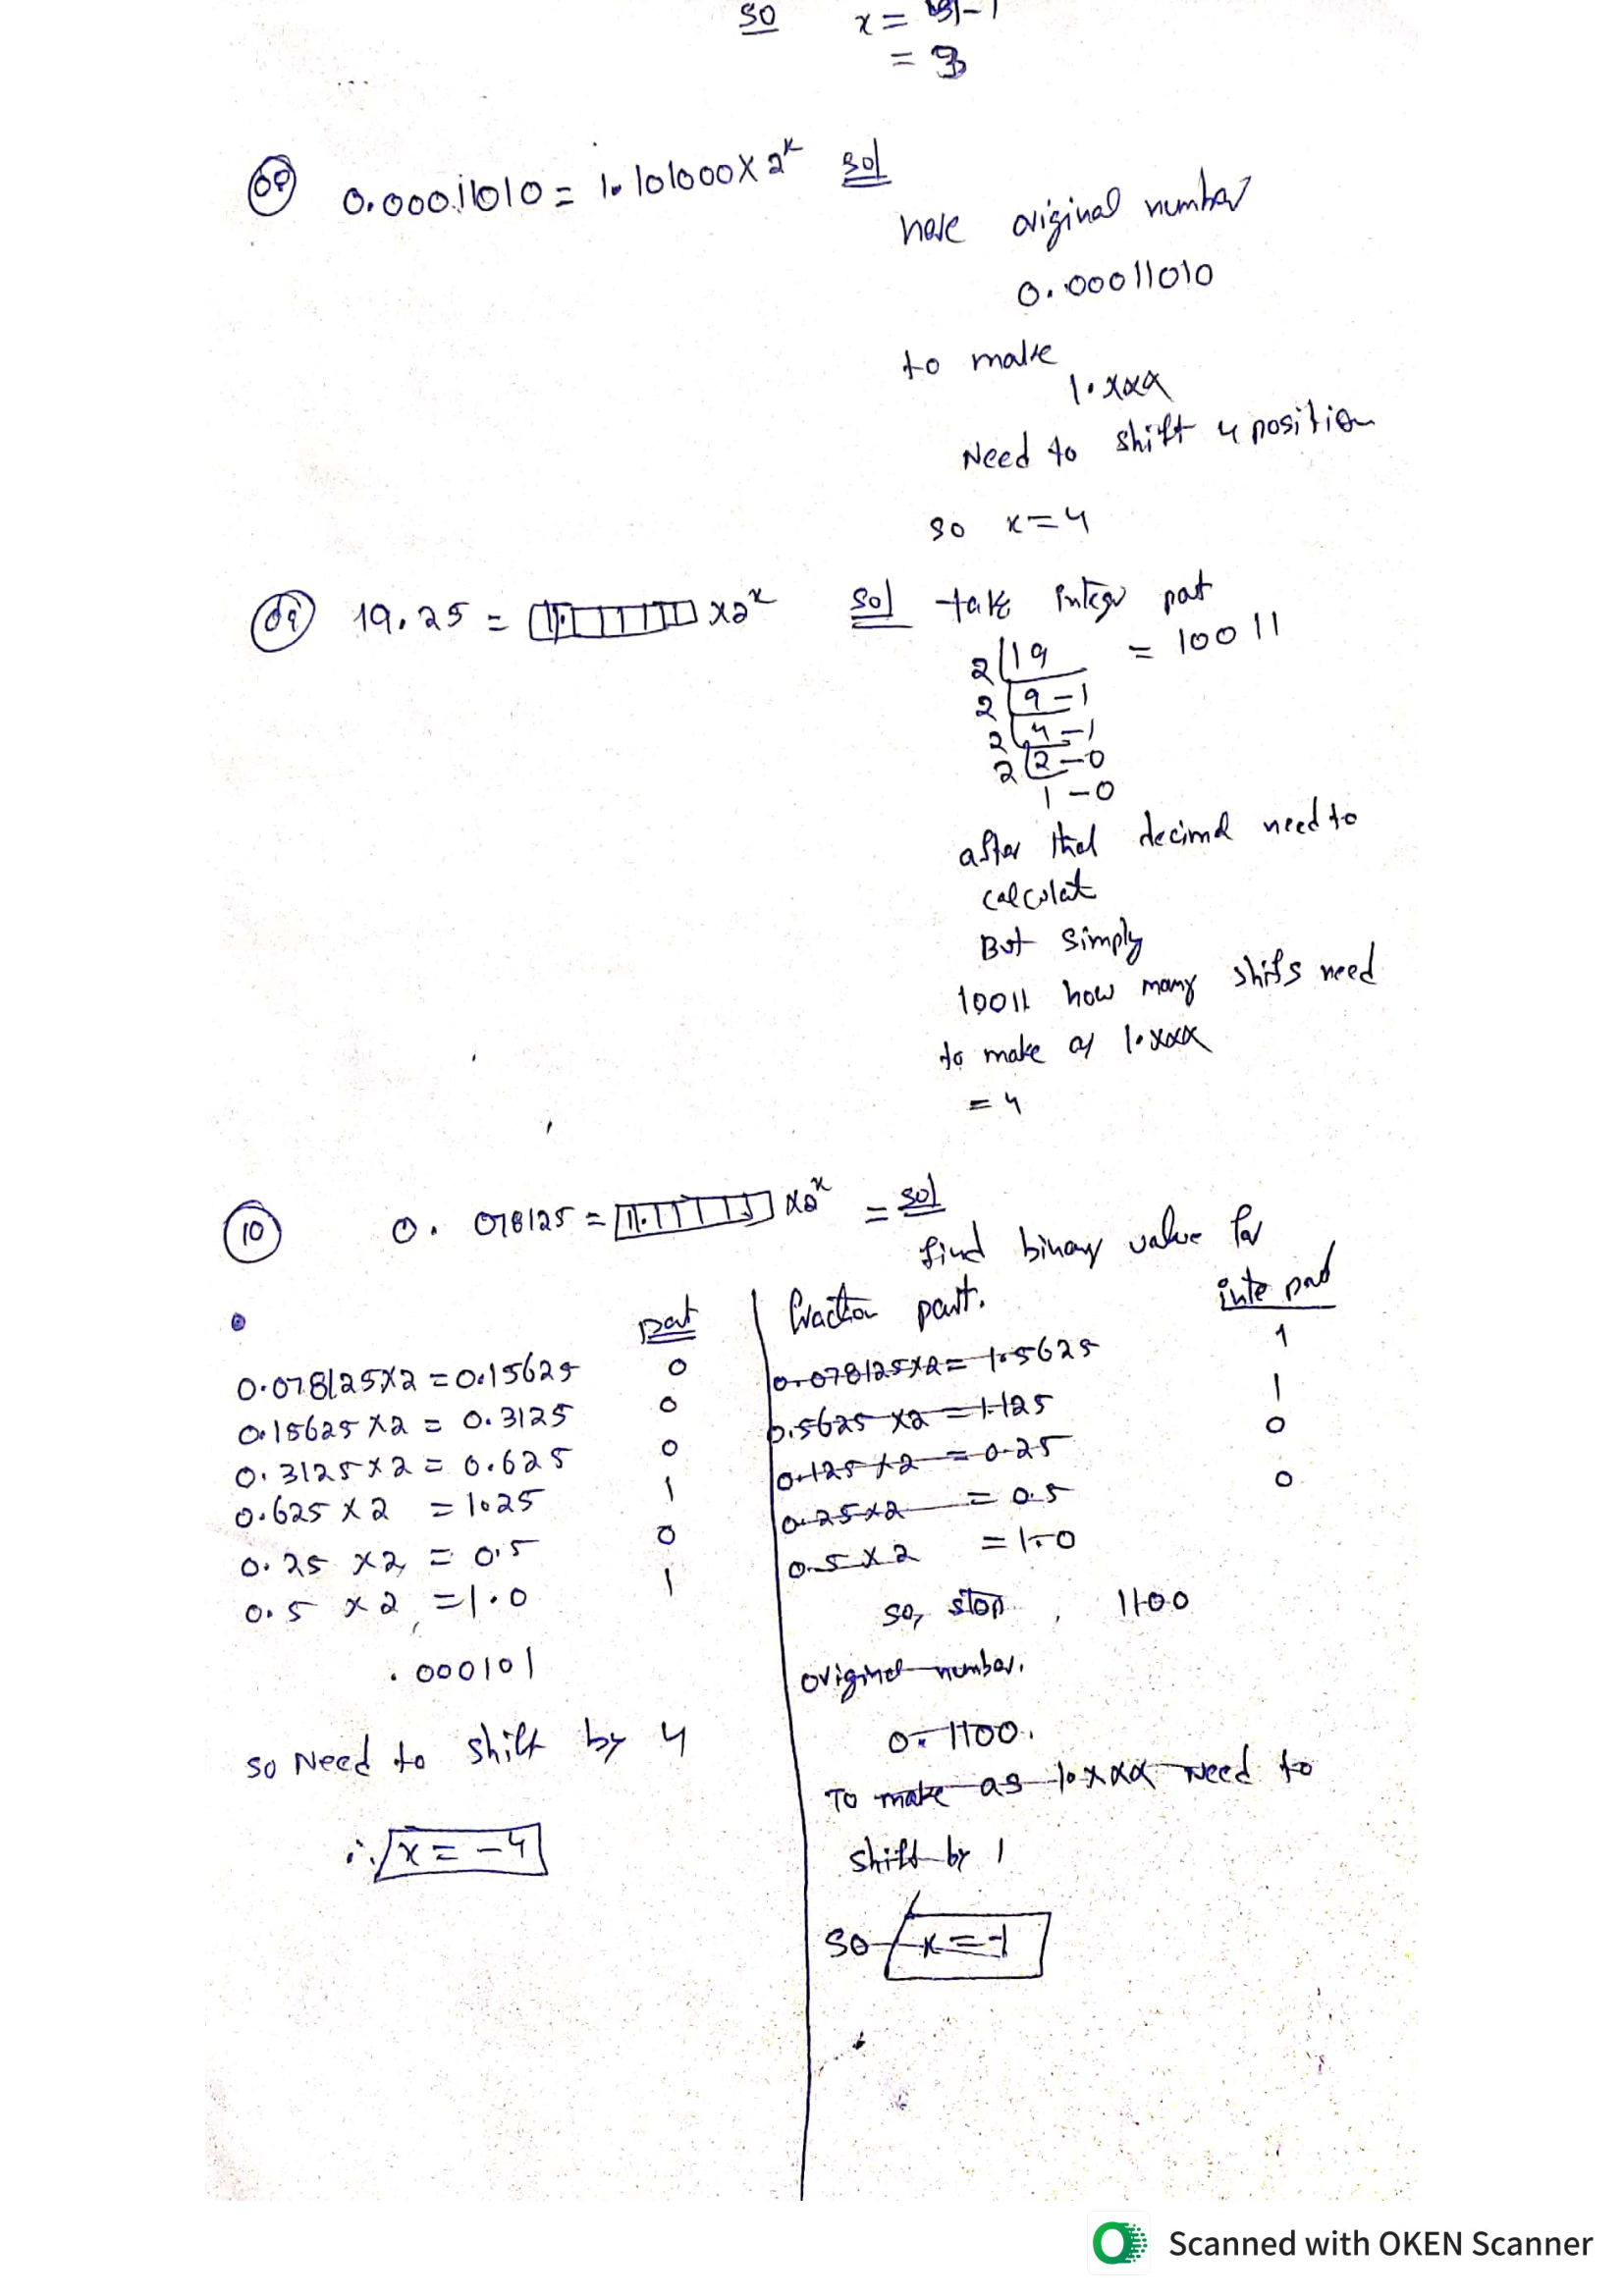 so x =
= 3
08 0.00011010 = 1.101000 x 2^x sol
here original number
0.00011010
to make
1.xxx
Need to shift 4 position
so x = 4
09 19.25 = 1. x2^x sol take integr pat
2 19 = 10011
2 9 - 1
2 4 - 1
2 2 - 0
1 - 0
after that decimal need to
calculat
But simply
10011 how many shifs need
to make as 1.xxx
= 4
10 0.078125 = 1. x2^x = sol
find binary value for
fraction part.
part
0.078125x2 = 0.15625 0
0.15625 x2 = 0.3125 0
0.3125 x 2 = 0.625 0
0.625 x 2 = 1.25 1
0.25 x2 = 0.5 0
0.5 x 2 = 1.0 1
.000101
so Need to shift by 4
∴ x = -4
inte pad
0.078125x2 = 1.5625 1
0.5625 x2 = 1.125 1
0.125 x2 = 0.25 0
0.25x2 = 0.5 0
0.5 x 2 = 1.0
so, stop , 1100
original number.
0.1100.
To make as 1.xxx Need to
shift by 1
so x = -1
Scanned with OKEN Scanner